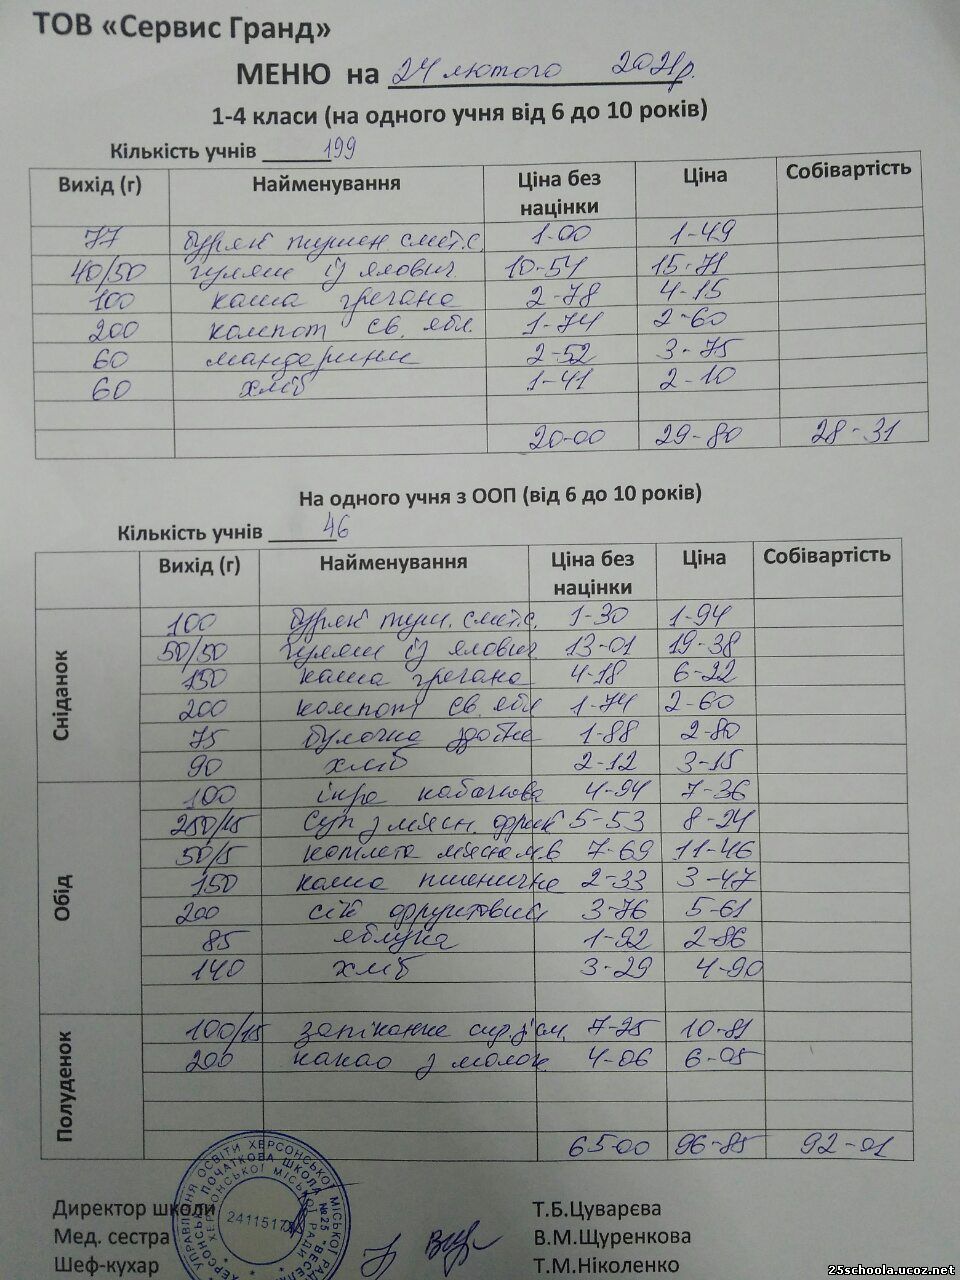 ТОВ «Сервис Гранд»
МЕНЮ на 24 лютого 2021р.
1-4 класи (на одного учня від 6 до 10 років)
Кількість учнів 199
Вихід (г) Найменування Ціна без націнки Ціна Собівартість
77 буряк тушен. смет.с. 1-00 1-49
40/50 гуляш із ялович. 10-54 15-71
100 каша гречана 2-78 4-15
200 компот св. ябл. 1-74 2-60
60 мандарини 2-52 3-75
60 хліб 1-41 2-10
20-00 29-80 28-31
На одного учня з ООП (від 6 до 10 років)
Кількість учнів 46
Вихід (г) Найменування Ціна без націнки Ціна Собівартість
Сніданок
100 буряк туш. смет.с. 1-30 1-94
50/50 гуляш із ялович. 13-01 19-38
150 каша гречана 4-18 6-22
200 компот св. ябл 1-74 2-60
75 булочка здобна 1-88 2-80
90 хліб 2-12 3-15
Обід
100 ікра кабачкова 4-94 7-36
250/15 суп з мясн. фрик 5-53 8-24
50/5 котлета мясна 7-69 11-46
150 каша пшенична 2-33 3-47
200 сік фруктовий 3-76 5-61
85 яблука 1-92 2-86
140 хліб 3-29 4-90
Полуденок
100/15 запіканка сир. 7-25 10-81
200 какао з молок 4-06 6-05
65-00 96-85 92-01
Директор школи Т.Б.Цуварєва
Мед. сестра В.М.Щуренкова
Шеф-кухар Т.М.Ніколенко
УПРАВЛІННЯ ОСВІТИ ХЕРСОНСЬКОЇ МІСЬКОЇ РАДИ
ПОЧАТКОВА ШКОЛА №25
ХЕРСОНСЬКОЇ МІСЬКОЇ РАДИ
25schoola.ucoz.net